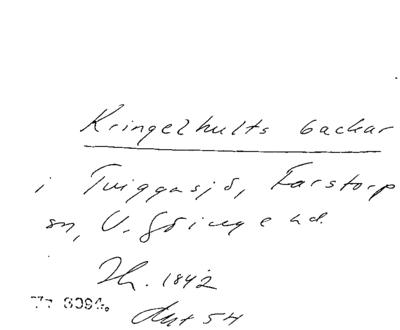 Kringelhults backar
i Tviggasjö, Farstorp
sn, V. Göinge hd.
1842
54